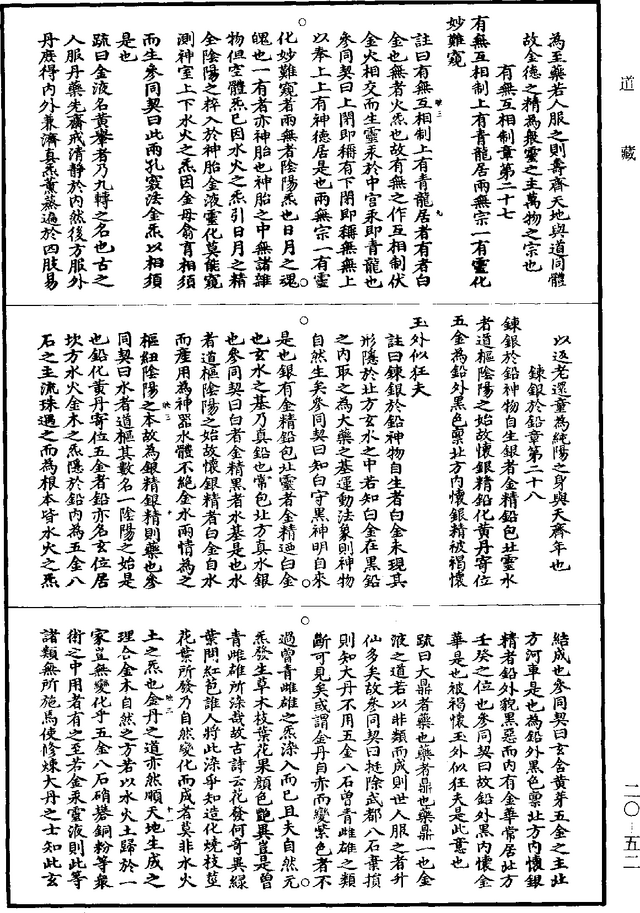 道藏
為至藥若人服之則壽齊天地與道同體
故金德之精為衆靈之主萬物之宗也
有無互相制章第二十七
有無互相制上有青龍居兩無宗一有靈化
妙難窺
註曰有無互相制上有青龍居者有者白
金也無者火炁也故有無之作互相制伏
金火相交而生靈汞於中宫汞即青龍也
參同契曰上閉即稱有下閉即稱無無上
以奉上上有神德居是也兩無宗一有靈
化妙難窺者兩無者陰陽炁也日月之魂
魄也一有者亦神胎也神胎之中無諸雜
物但空體炁已因水火之炁引日月之精
全陰陽之粹入於神胎金液靈化莫能窺
測神室上下水火之炁因金母翕育相須
而生參同契曰此兩孔竅法金炁以相須
是也
疏曰金液名黄轝者乃九轉之名也古之
人服丹藥先齋戒清靜於内然後方服外
丹庶得内外兼濟真炁薰蒸遍於四肢易
以返老還童為純陽之身與天齊年也
鍊銀於鉛章第二十八
鍊銀於鉛神物自生銀者金精鉛包北靈水
者道樞陰陽之始故懷銀精鉛化黄丹寄位
五金為鉛外黑色禀北方内懷銀精被褐懷
玉外似狂夫
註曰鍊銀於鉛神物自生者白金未現其
形隱於北方玄水之中若知白金在黑鉛
之内取之為大藥之基運動法象則神物
自然生矣參同契曰知白守黑神明自來
是也銀有金精鉛包北靈者金精廼白金
也玄水之基乃真鉛也常包北方真水銀
也參同契曰白者金精黑者水基是也水
者道樞陰陽之始故懷銀精者白金自水
而產用為神器水體不絶金水兩情為之
樞紐陰陽之本故為銀精銀精則藥也參
同契曰水者道樞其數名一陰陽之始是
也鉛化黄丹寄位五金者鉛亦名玄位居
坎方水火金木之炁隱於鉛内為五金八
石之主流珠遇之而為根本皆水火之炁
結成也參同契曰玄含黄芽五金之主北
方河車是也為鉛外黑色禀北方内懷銀
精者鉛外貌黑惡而内有金華常居北方
壬癸之位也參同契曰故鉛外黑内懷金
華是也被褐懷玉外似狂夫是此意也
疏曰大鼎者藥也藥者鼎也藥鼎一也金
液之道若以非類而成則世人服之者升
仙多矣故參同契曰挺除武都八石棄損
則知大丹不用五金八石曾青雌雄之類
斷可見矣或謂金丹自赤而變紫色者不
過曾青雌雄之炁涤入而已且夫自然元
炁發生草木枝葉花果顔色艷異豈是曾
青雌雄所涤哉故古詩云花發何奇異緑
葉間紅苞誰人將此涤乎知造化燒枝莖
花葉所發乃自然變化而成者莫非水火
土之炁也金丹之道亦然順天地生成之
理合金木自然之方若以水火土歸於一
家豈無變化乎五金八石硝礬銅粉等衆
術之中用者有之至若金汞靈液則此等
諸類無所施焉使修煉大丹之士知此玄
二〇·五二